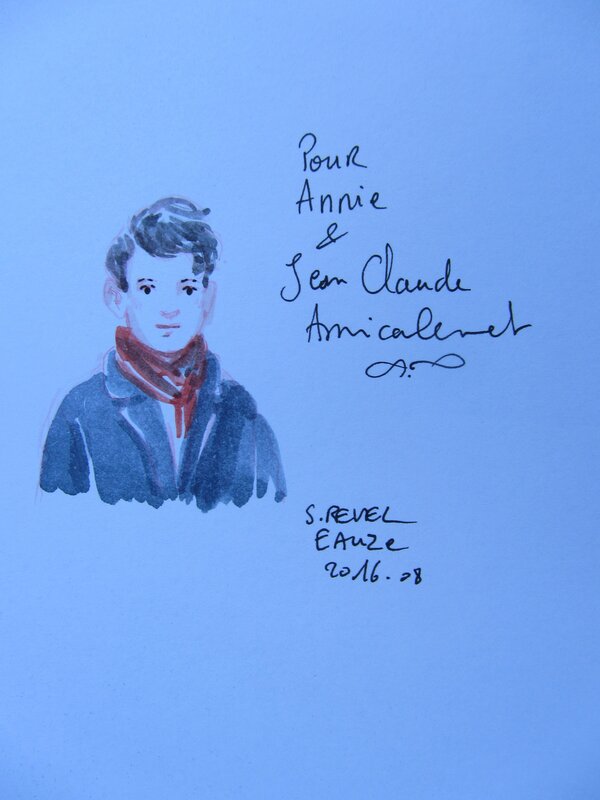 Pour
Annie
&
Jean Claude
Amicalement
S. REVEL
EAUZE
2016.08